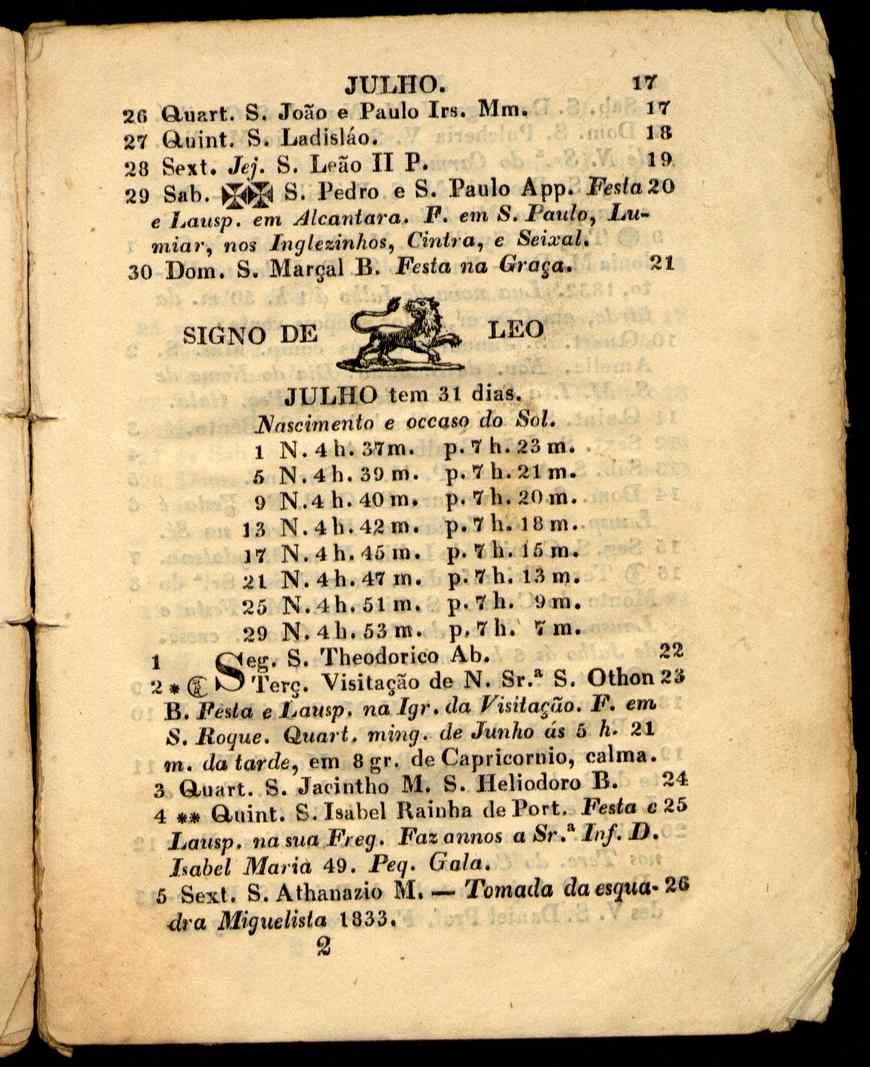 JULHO. 17
26 Quart. S. João e Paulo Irs. Mm. 17
27 Quint. S. Ladisláo. 18
28 Sext. Jej. S. Leão II P. 19
29 Sab. ✠✠ S. Pedro e S. Paulo App. Festa 20
e Lausp. em Alcantara. F. em S. Paulo, Lu-
miar, nos Inglezinhos, Cintra, e Seixal.
30 Dom. S. Marçal B. Festa na Graça. 21
SIGNO DE LEO
JULHO tem 31 dias.
Nascimento e occaso do Sol.
1 N. 4 h. 37 m. p. 7 h. 23 m.
5 N. 4 h. 39 m. p. 7 h. 21 m.
9 N. 4 h. 40 m. p. 7 h. 20 m.
13 N. 4 h. 42 m. p. 7 h. 18 m.
17 N. 4 h. 45 m. p. 7 h. 15 m.
21 N. 4 h. 47 m. p. 7 h. 13 m.
25 N. 4 h. 51 m. p. 7 h. 9 m.
29 N. 4 h. 53 m. p. 7 h. 7 m.
1 Seg. S. Theodorico Ab. 22
2 * ☾ Terç. Visitação de N. Sr.ª S. Othon 23
B. Festa e Lausp. na Igr. da Visitação. F. em
S. Roque. Quart. ming. de Junho ás 5 h. 21
m. da tarde, em 8 gr. de Capricornio, calma.
3 Quart. S. Jacintho M. S. Heliodoro B. 24
4 ** Quint. S. Isabel Rainha de Port. Festa e 25
Lausp. na sua Freg. Faz annos a Sr.ª Inf. D.
Isabel Maria 49. Peq. Gala.
5 Sext. S. Athanazio M. — Tomada da esqua- 26
dra Miguelista 1833.
2